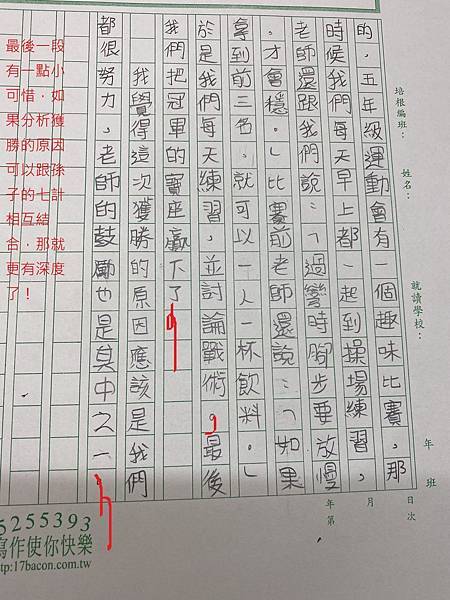 培根編班： 姓名： 就讀學校： 年 班
年 月 日 第 次
的，五年級運動會有一個趣味比賽，那
時候我們每天早上都一起到操場練習，
老師還跟我們說：「過彎時腳步要放慢
，才會穩。」比賽前老師還說：「如果
拿到前三名，就可以一人一杯飲料。」
於是我們每天練習，並討論戰術，最後
我們把冠軍的寶座贏下了
我覺得這次獲勝的原因應該是我們
都很努力，老師的鼓勵也是其中之一
最後一段
有一點小
可惜，如
果分析獲
勝的原因
可以跟孫
子的七計
相互結
合，那就
更有深度
了！
5255393
寫作使你快樂
tp:17bacon.com.tw